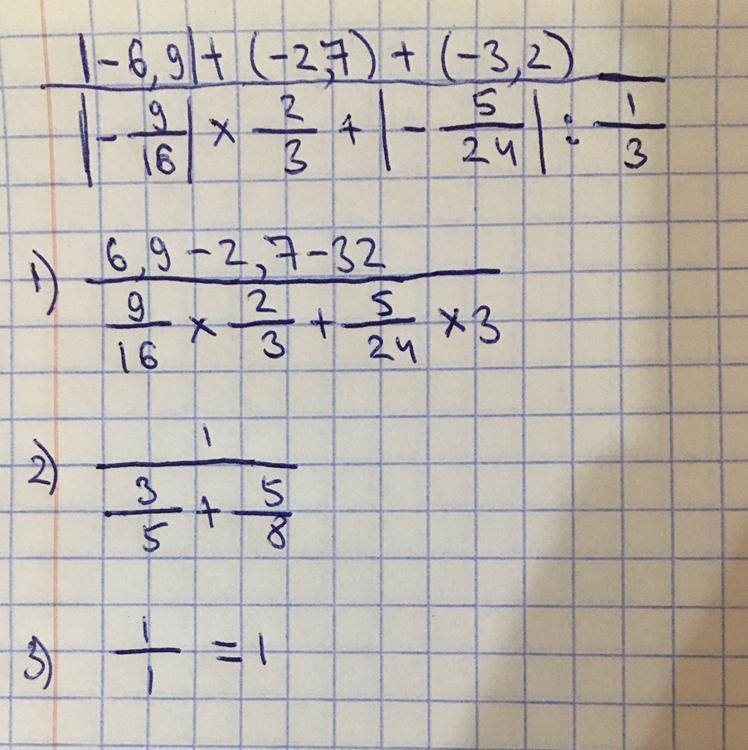 |-6,9| + (-2,7) + (-3,2)
|- 9/16| × 2/3 + |- 5/24| : 1/3
1) 6,9 - 2,7 - 32
9/16 × 2/3 + 5/24 × 3
2) 1
3/5 + 5/8
3) 1/1 = 1